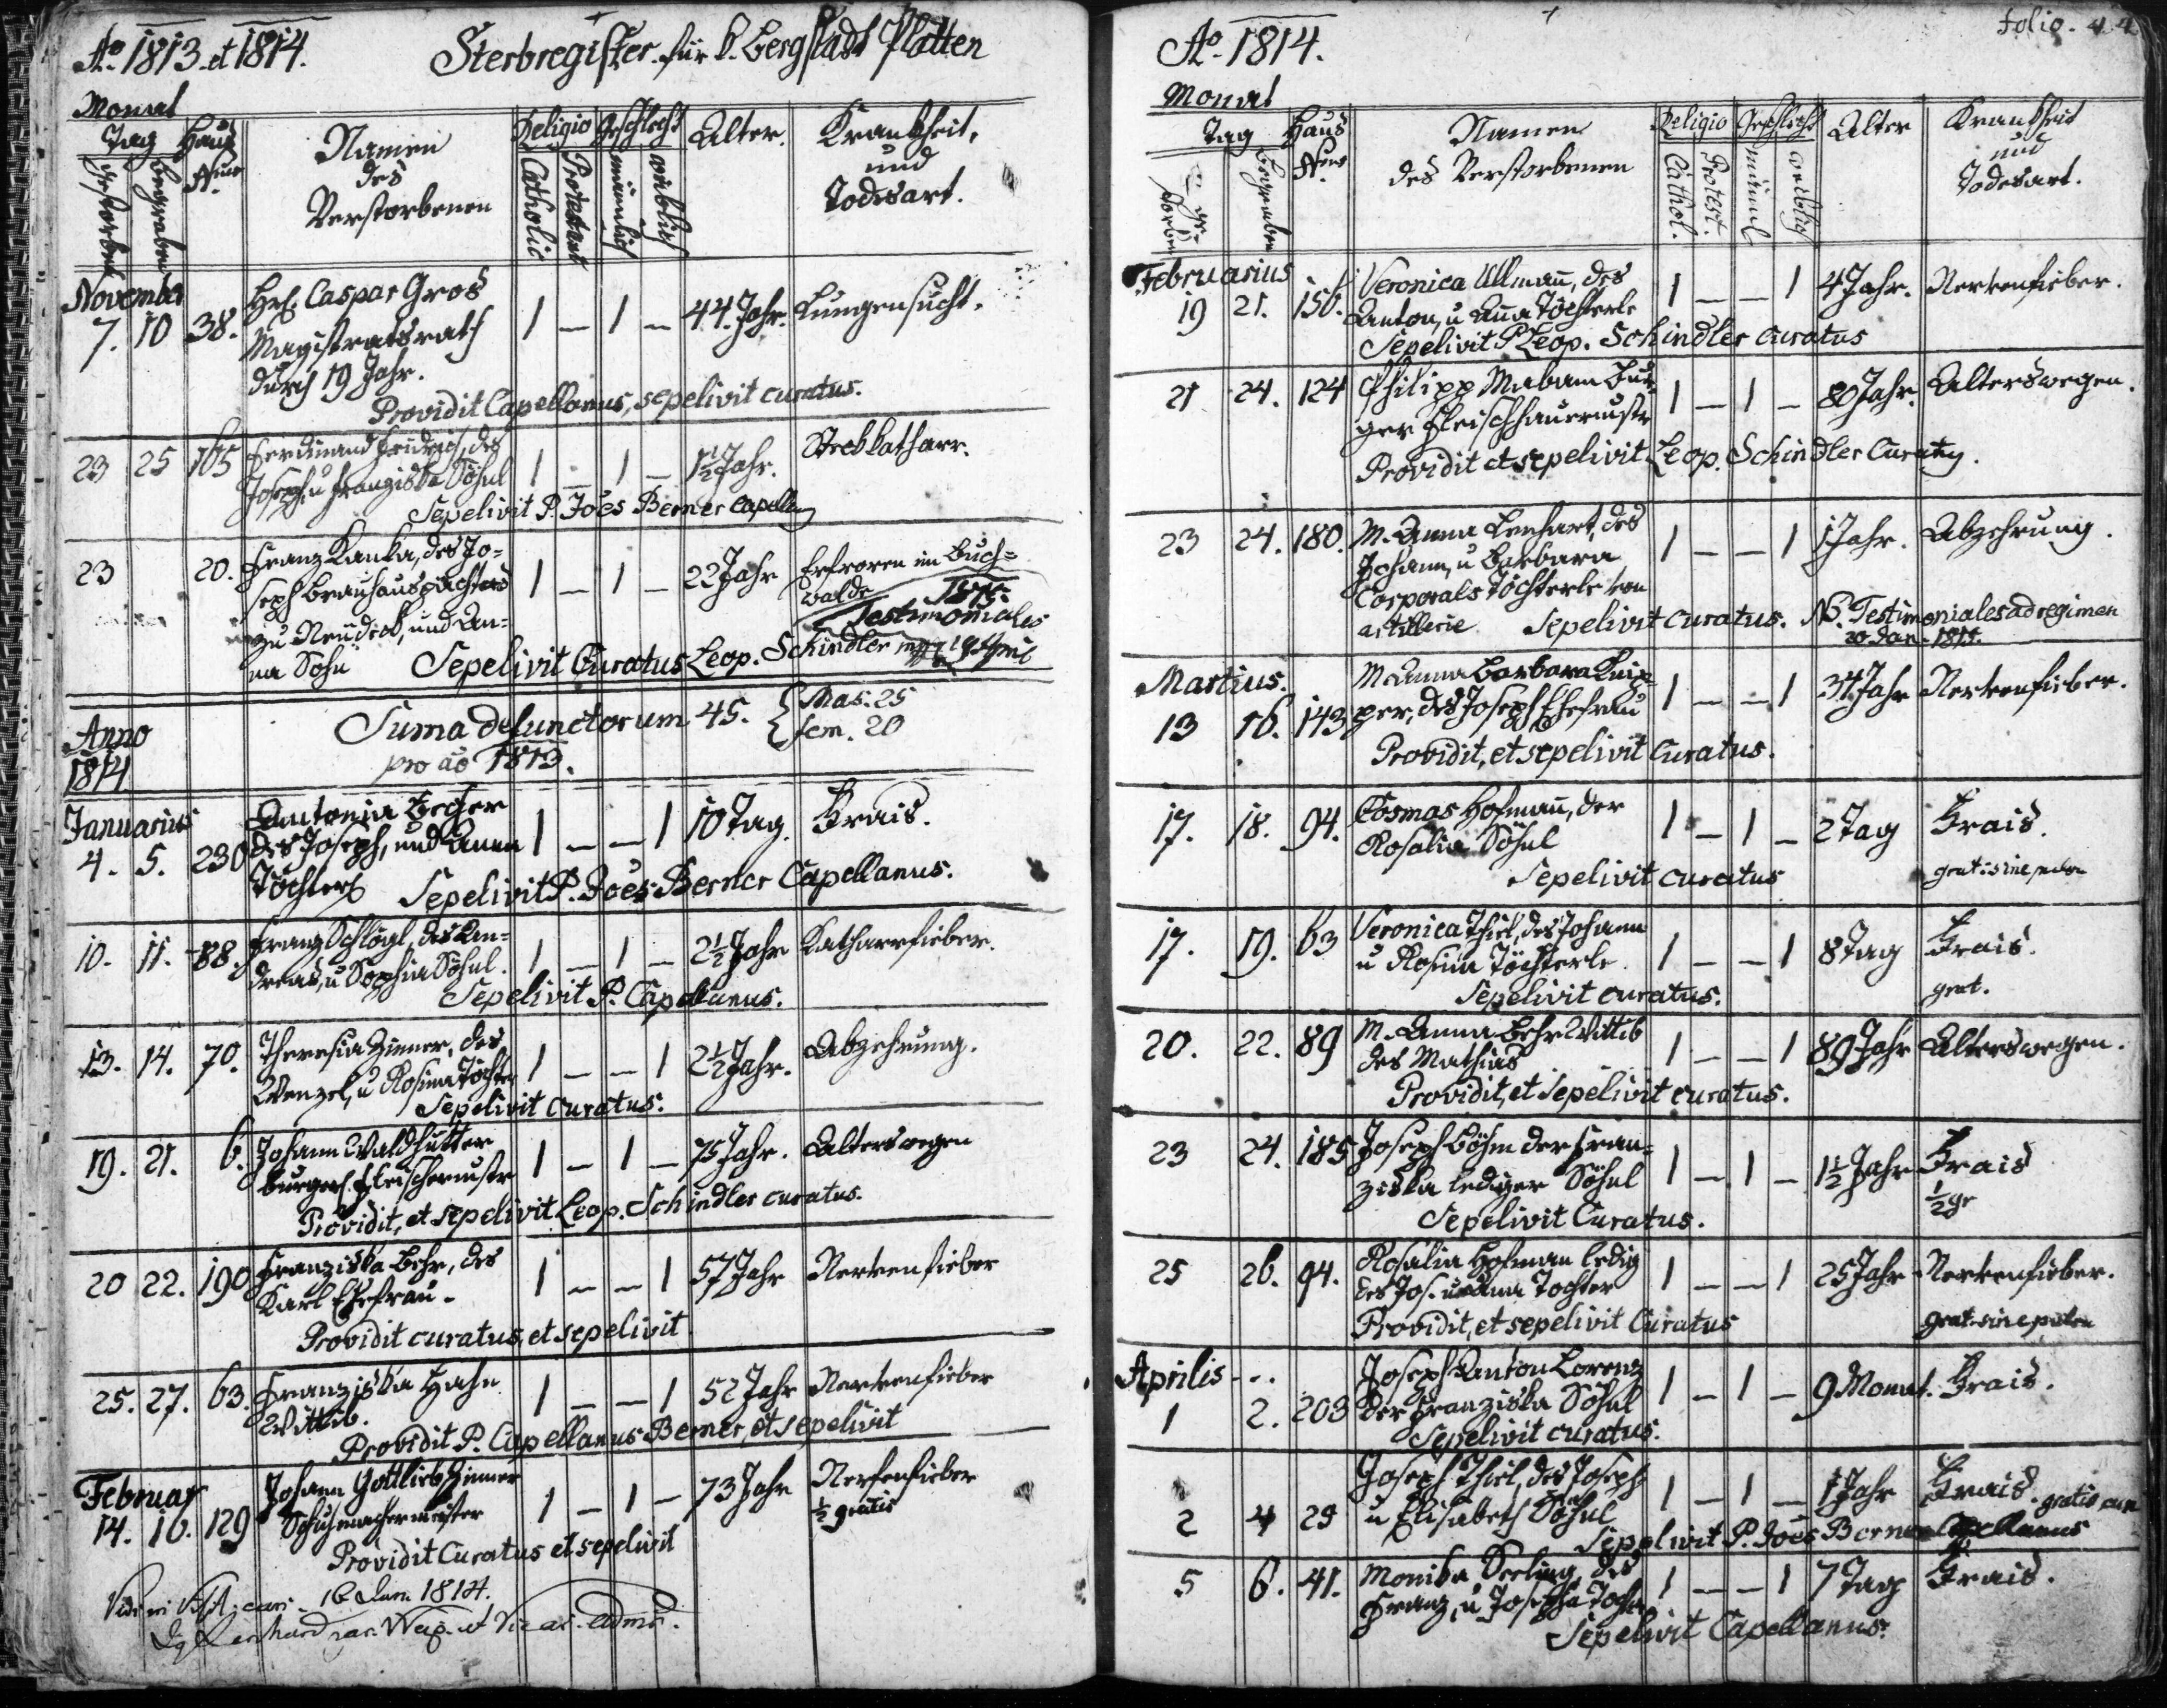 Ao 1813. et 1814. Sterbregister für k. Bergstadt Platten
Monat
Tag Haus Nro
gestorben begraben
Namen des Verstorbenen
Religio Geschlecht
Catholic Protestant männlich weiblich
Alter.
Krankheit, und Todesart.
November
7. 10 38. H. Caspar Gros 1 – 1 – 44. Jahr. Lungensucht.
Magistratsrath
durch 19 Jahr.
Providit Capellanus, sepelivit curatus.
23 25 165 Ferdinand Friedrich, des 1 – 1 – 1½ Jahr. Steckkatharr.
Joseph, u Franziska Söhnl
Sepelivit P. Joes Berner Capellan
23 20. Franz Kanka, des Jo= 1 – 1 – 22 Jahr Erfroren im Buch=
seph Brauhauspächters walde
zu Neudeck, und An= Testimoniales
na Sohn Sepelivit Curatus Leop. Schindler 19 April
Suma defunctorum 45. { Mas. 25
fem. 20
pro ao 1813.
Anno
1814
Januarius Antonia Becher
4. 5. 230 des Joseph, und Anna 1 – – 1 10 Tag. Frais.
Töchterl Sepelivit P. Joes Berner Capellanus.
10. 11. 88. Franz Schlögl, des An= 1 – 1 – 2½ Jahr Katharrfieber.
dreas, u Sophia Söhnl.
Sepelivit P. Capellanus.
13. 14. 70. Theresia Zinner, des 1 – – 1 2½ Jahr. Abzehrung.
Wenzel, u Rosina Töchter
Sepelivit curatus.
19. 21. 6. Johann Waldhütter 1 – 1 – 75 Jahr. Alterswegen
burgerl. Fleischermstr
Providit, et sepelivit Leop. Schindler curatus.
20 22. 190 Franziska Behr, des 1 – – 1 57 Jahr Nervenfieber
Karl Ehefrau.
Providit curatus, et sepelivit
25. 27. 63. Franziska Hahn 1 – – 1 52 Jahr Nervenfieber
Wittib.
Providit P. Capellanus Berner, et sepelivit
Februar Johann Gottlieb Zinner
14. 16. 129 Schuhmachermeister 1 – 1 – 73 Jahr Nerfenfieber
½ gratis
Providit Curatus et sepelivit
16 Jun. 1814.
Folio. 44
Ao. 1814.
Monat
Tag Haus Nro
gestorben begraben
Namen des Verstorbenen
Religio Geschlecht
Cathol. Protest. männl weiblich
Alter
Krankheit und Todesart.
Februarius Veronica Ullmann, des
19 21. 156. Anton, u Anna Töchterle 1 – – 1 4 Jahr. Nervenfieber.
Sepelivit P. Leop. Schindler curatus
21 24. 124 Philipp Mabam Bur= 1 – 1 – 80 Jahr. Alterswegen.
ger Fleischhauermstr
Providit et sepelivit Leop. Schindler Curatus.
23 24. 180. M. Anna Lenhart, des 1 – – 1 1 Jahr. Abzehrung.
Johann, u Barbara
Corporals Töchterle von
artillerie Sepelivit curatus. NB. Testimoniales ad regimen
20 Jan. 1815.
Martius. M Anna Barbara
13 16. 143 per, des Joseph Ehefrau 1 – – 1 34 Jahr Nervenfieber.
Providit, et sepelivit Curatus.
17. 18. 94. Cosmas Hofmann, der 1 – 1 – 2 Tag Frais.
Rosalia Söhnl
Sepelivit curatus
17. 19. 63 Veronica Thiel, des Johann 1 – – 1 8 Tag Frais.
u Rosina Töchterle grat.
Sepelivit curatus.
20. 22. 89 M. Anna Behr Wittib 1 – – 1 89 Jahr Alterswegen.
des Mathias
Providit, et sepelivit curatus.
23 24. 185 Joseph Böhm der Fran= 1 – 1 – 1½ Jahr Frais
ziska lediger Söhnl ½ gr
Sepelivit Curatus.
25 26. 94. Rosalia Hofman ledig 1 – – 1 25 Jahr Nervenfieber.
des Jos. u Anna Tochter
Providit, et sepelivit Curatus
Aprilis Joseph Anton Lorenz
1 2. 203 der Franziska Söhnl 1 – 1 – 9 Monat. Frais.
Sepelivit curatus.
Joseph Thiel, des Joseph
2 4 29 u Elisabeth Söhnl 1 – 1 – 1 Jahr Frais. gratis
Sepelivit P. Joes Berner Capellanus
5 6. 41. Monika Seeling, des 1 – – 1 7 Tag Frais.
Franz, u Josepha Tocht
Sepelivit Capellanus.